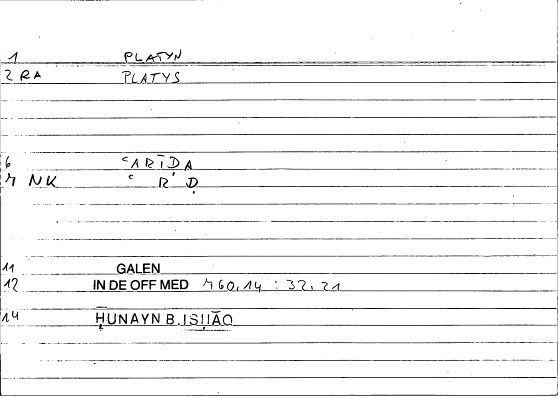 1 PLATYN
2 RA PLATYS
6 ʿARĪḌA
7 NK ʿ R Ḍ
11 GALEN
12 IN DE OFF MED 760,14 : 32,21
14 ḤUNAYN B. ISḤĀQ